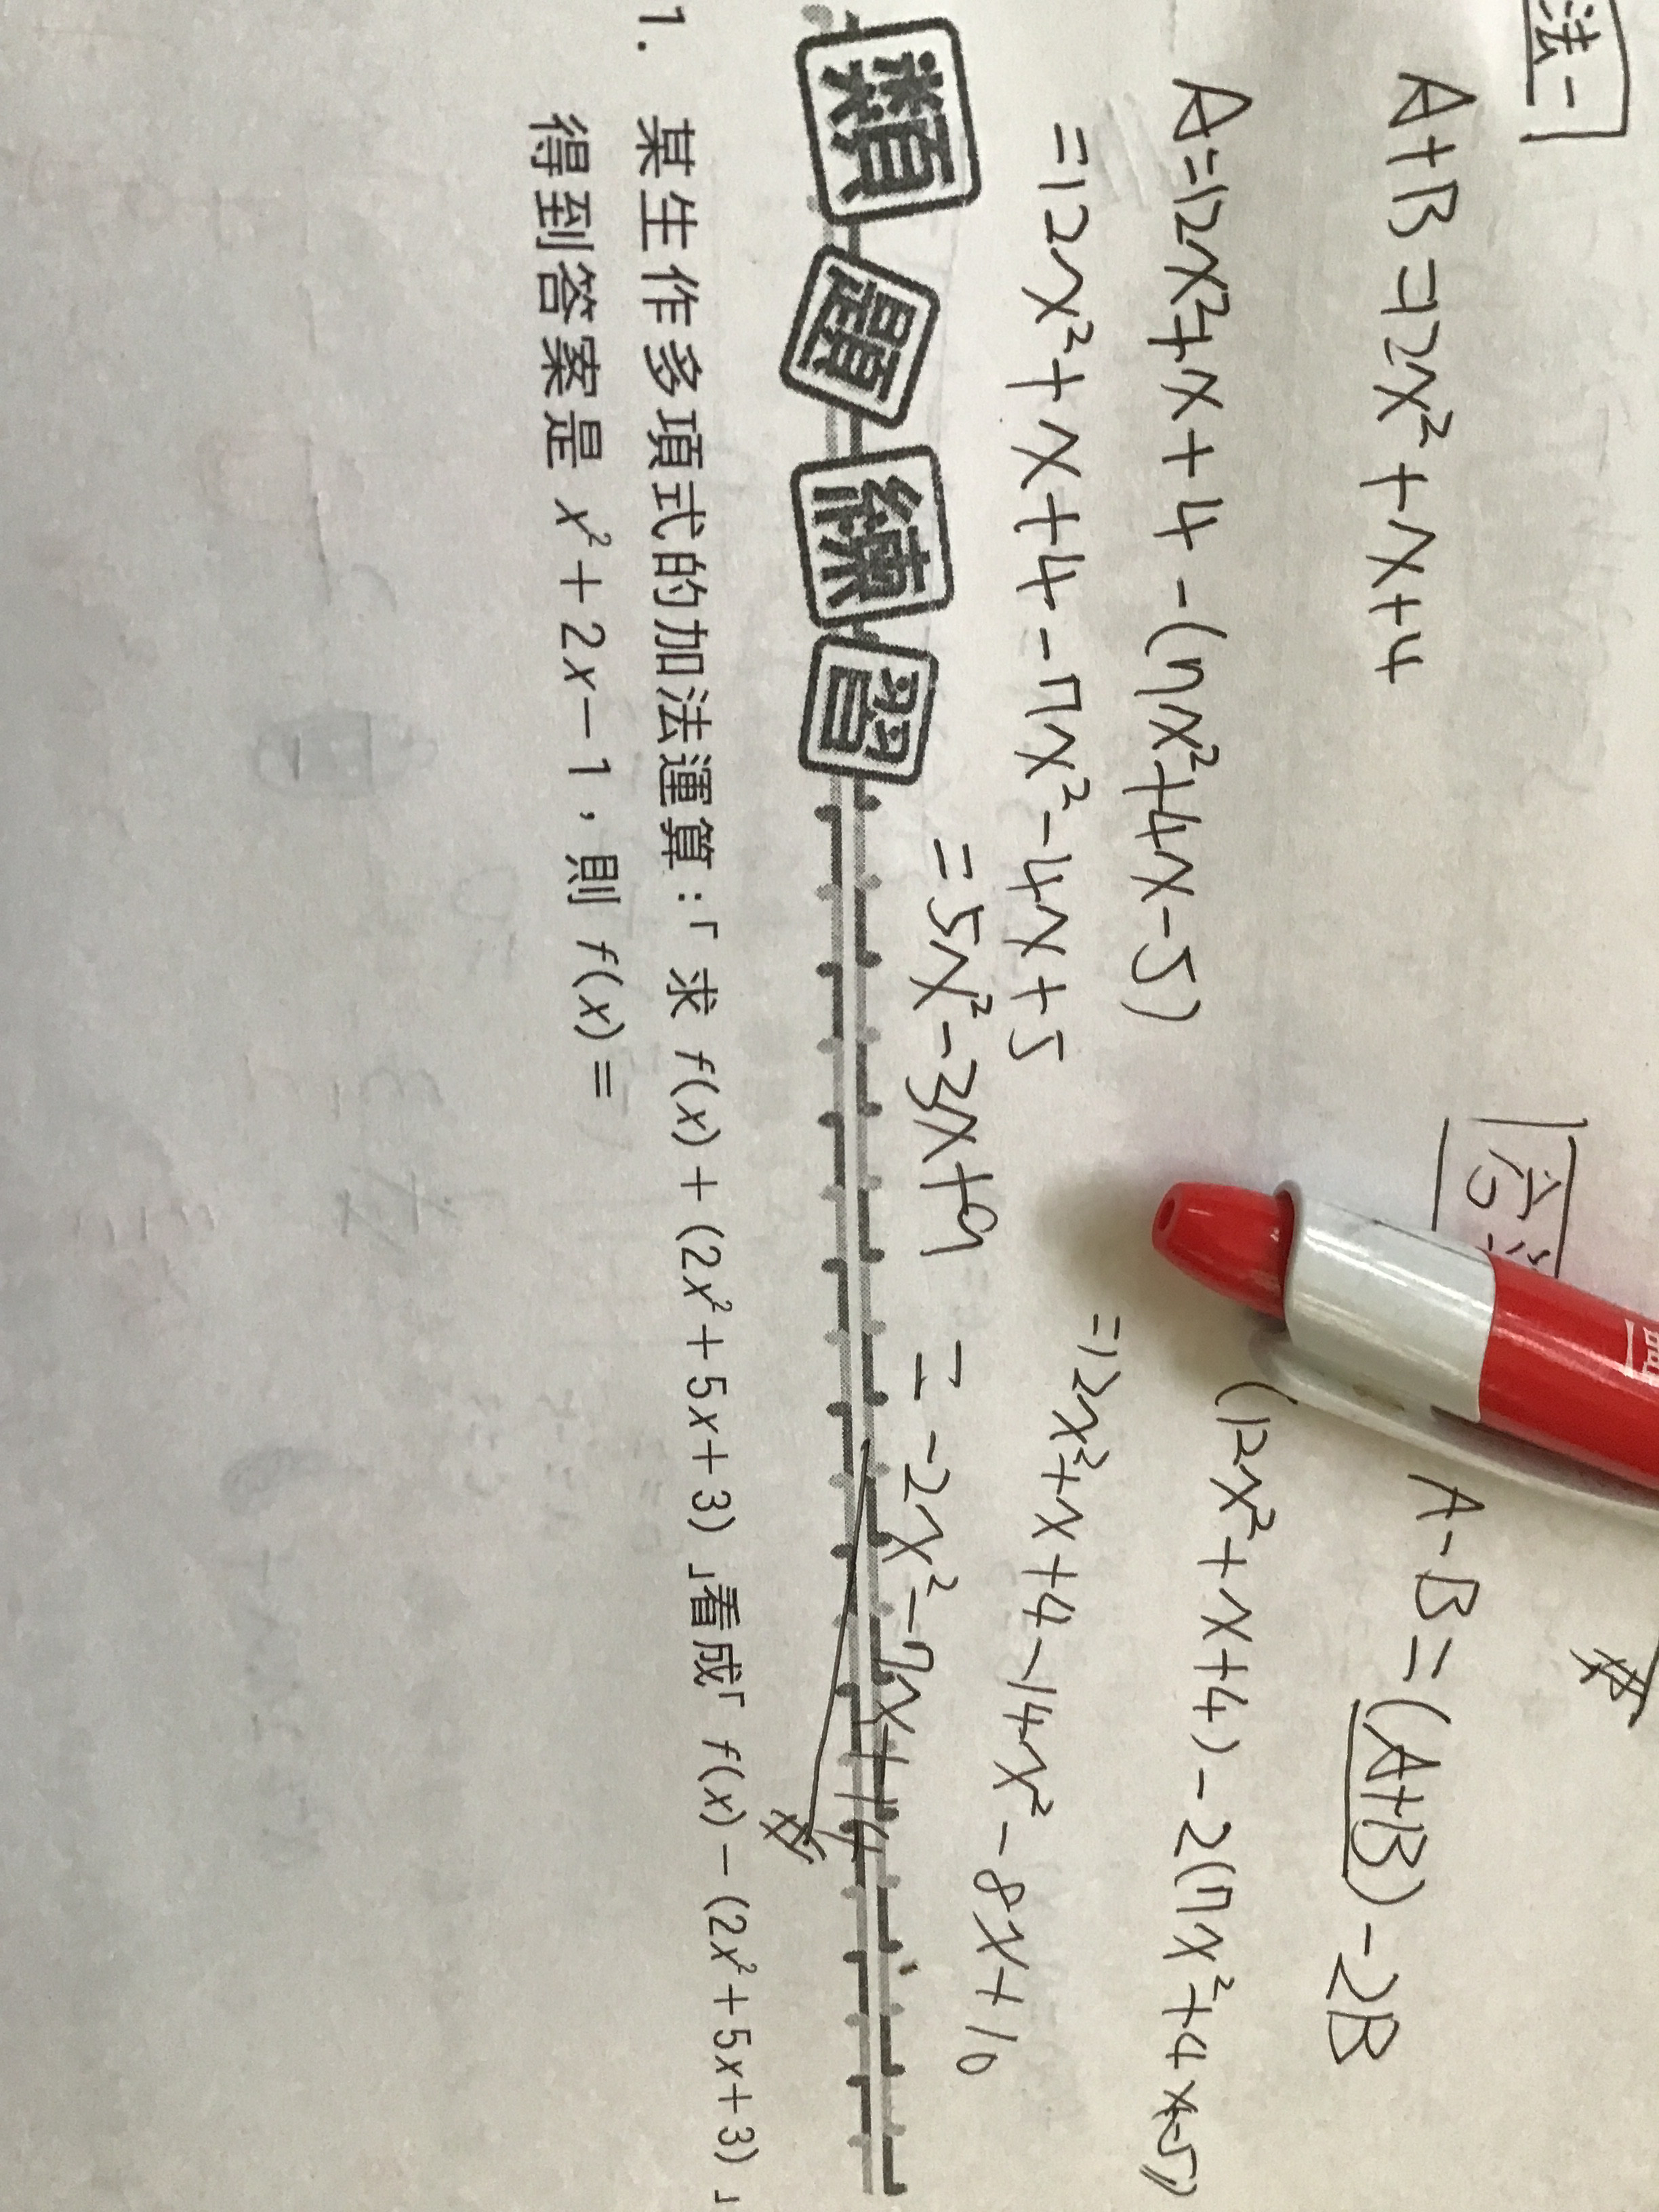 法一
A+B=12x²+x+4
A=12x²+x+4-(7x²+4x-5)
=12x²+x+4-7x²-4x+5
=5x²-3x+9
A-B=(A+B)-2B
(12x²+x+4)-2(7x²+4x-5)
=12x²+x+4-14x²-8x+10
=-2x²-7x+14
類題練習
1. 某生作多項式的加法運算:「求 f(x)+(2x²+5x+3)」看成「f(x)-(2x²+5x+3)」
得到答案是 x²+2x-1,則 f(x)=